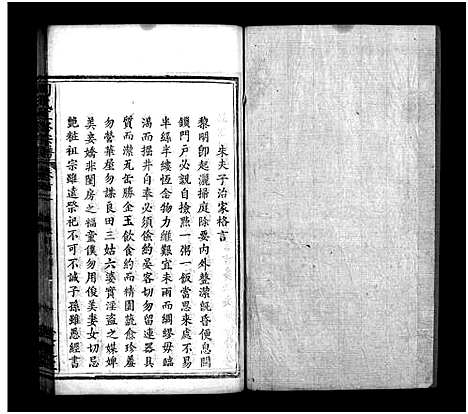 朱夫子治家格言
黎明即起灑掃庭除要內外整潔既昏便息關
鎖門戶必親自檢點一粥一飯當思來處不易
半絲半縷恆念物力維艱宜未雨而綢繆毋臨
渴而掘井自奉必須儉約宴客切勿留連器具
質而潔瓦缶勝金玉飲食約而精園蔬愈珍羞
勿營華屋勿謀良田三姑六婆實淫盜之媒婢
美妾嬌非閨房之福童僕勿用俊美妻女切忌
艷粧祖宗雖遠祭祀不可不誠子孫雖愚經書